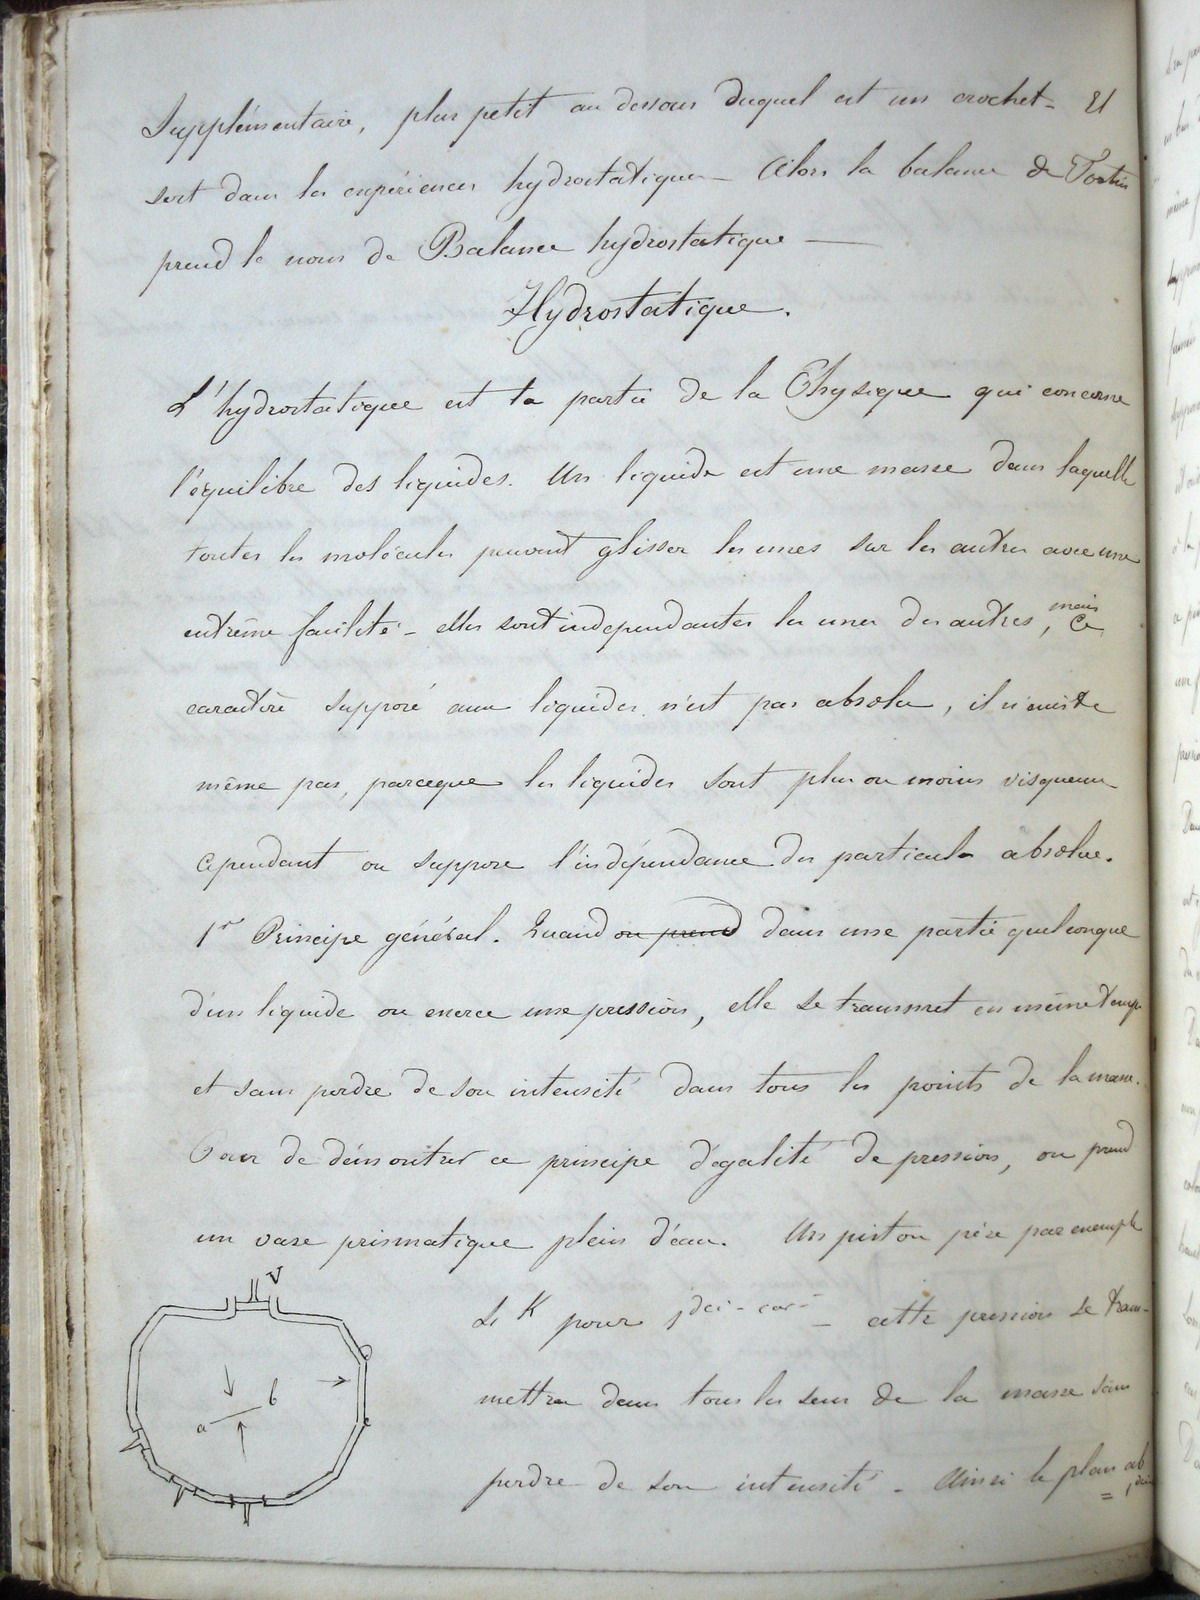 Supplémentaire, plus petit au dessous duquel est un crochet – El
sert dans les expériences hydrostatiques – Alors la balance de Fortin
prend le nom de Balance hydrostatique —
Hydrostatique.
L'hydrostatique est la partie de la Physique qui concerne
l'équilibre des liquides. Un liquide est une masse dans laquelle
toutes les molécules peuvent glisser les unes sur les autres avec une
extrême facilité – elles sont independantes les unes des autres, mais ce
caractère supposé aux liquides n'est pas absolu, il n'existe
même pas, parceque les liquides sont plus ou moins visqueux
Cependant on suppose l'indépendance des particules absolue.
1r Principe général. Quand on prend dans une partie quelconque
d'un liquide on exerce une pression, elle se transmet en même temps
et sans perdre de son intensité dans tous les points de la masse.
Pour de démontrer ce principe d'égalité de pression, on prend
un vase prismatique plein d'eau. Un piston pèse par exemple
K pour 1 déci-car – cette pression se trans-
V
mettra dans tous les sens de la masse sans
a b
perdre de son intensité – Ainsi le plan ab